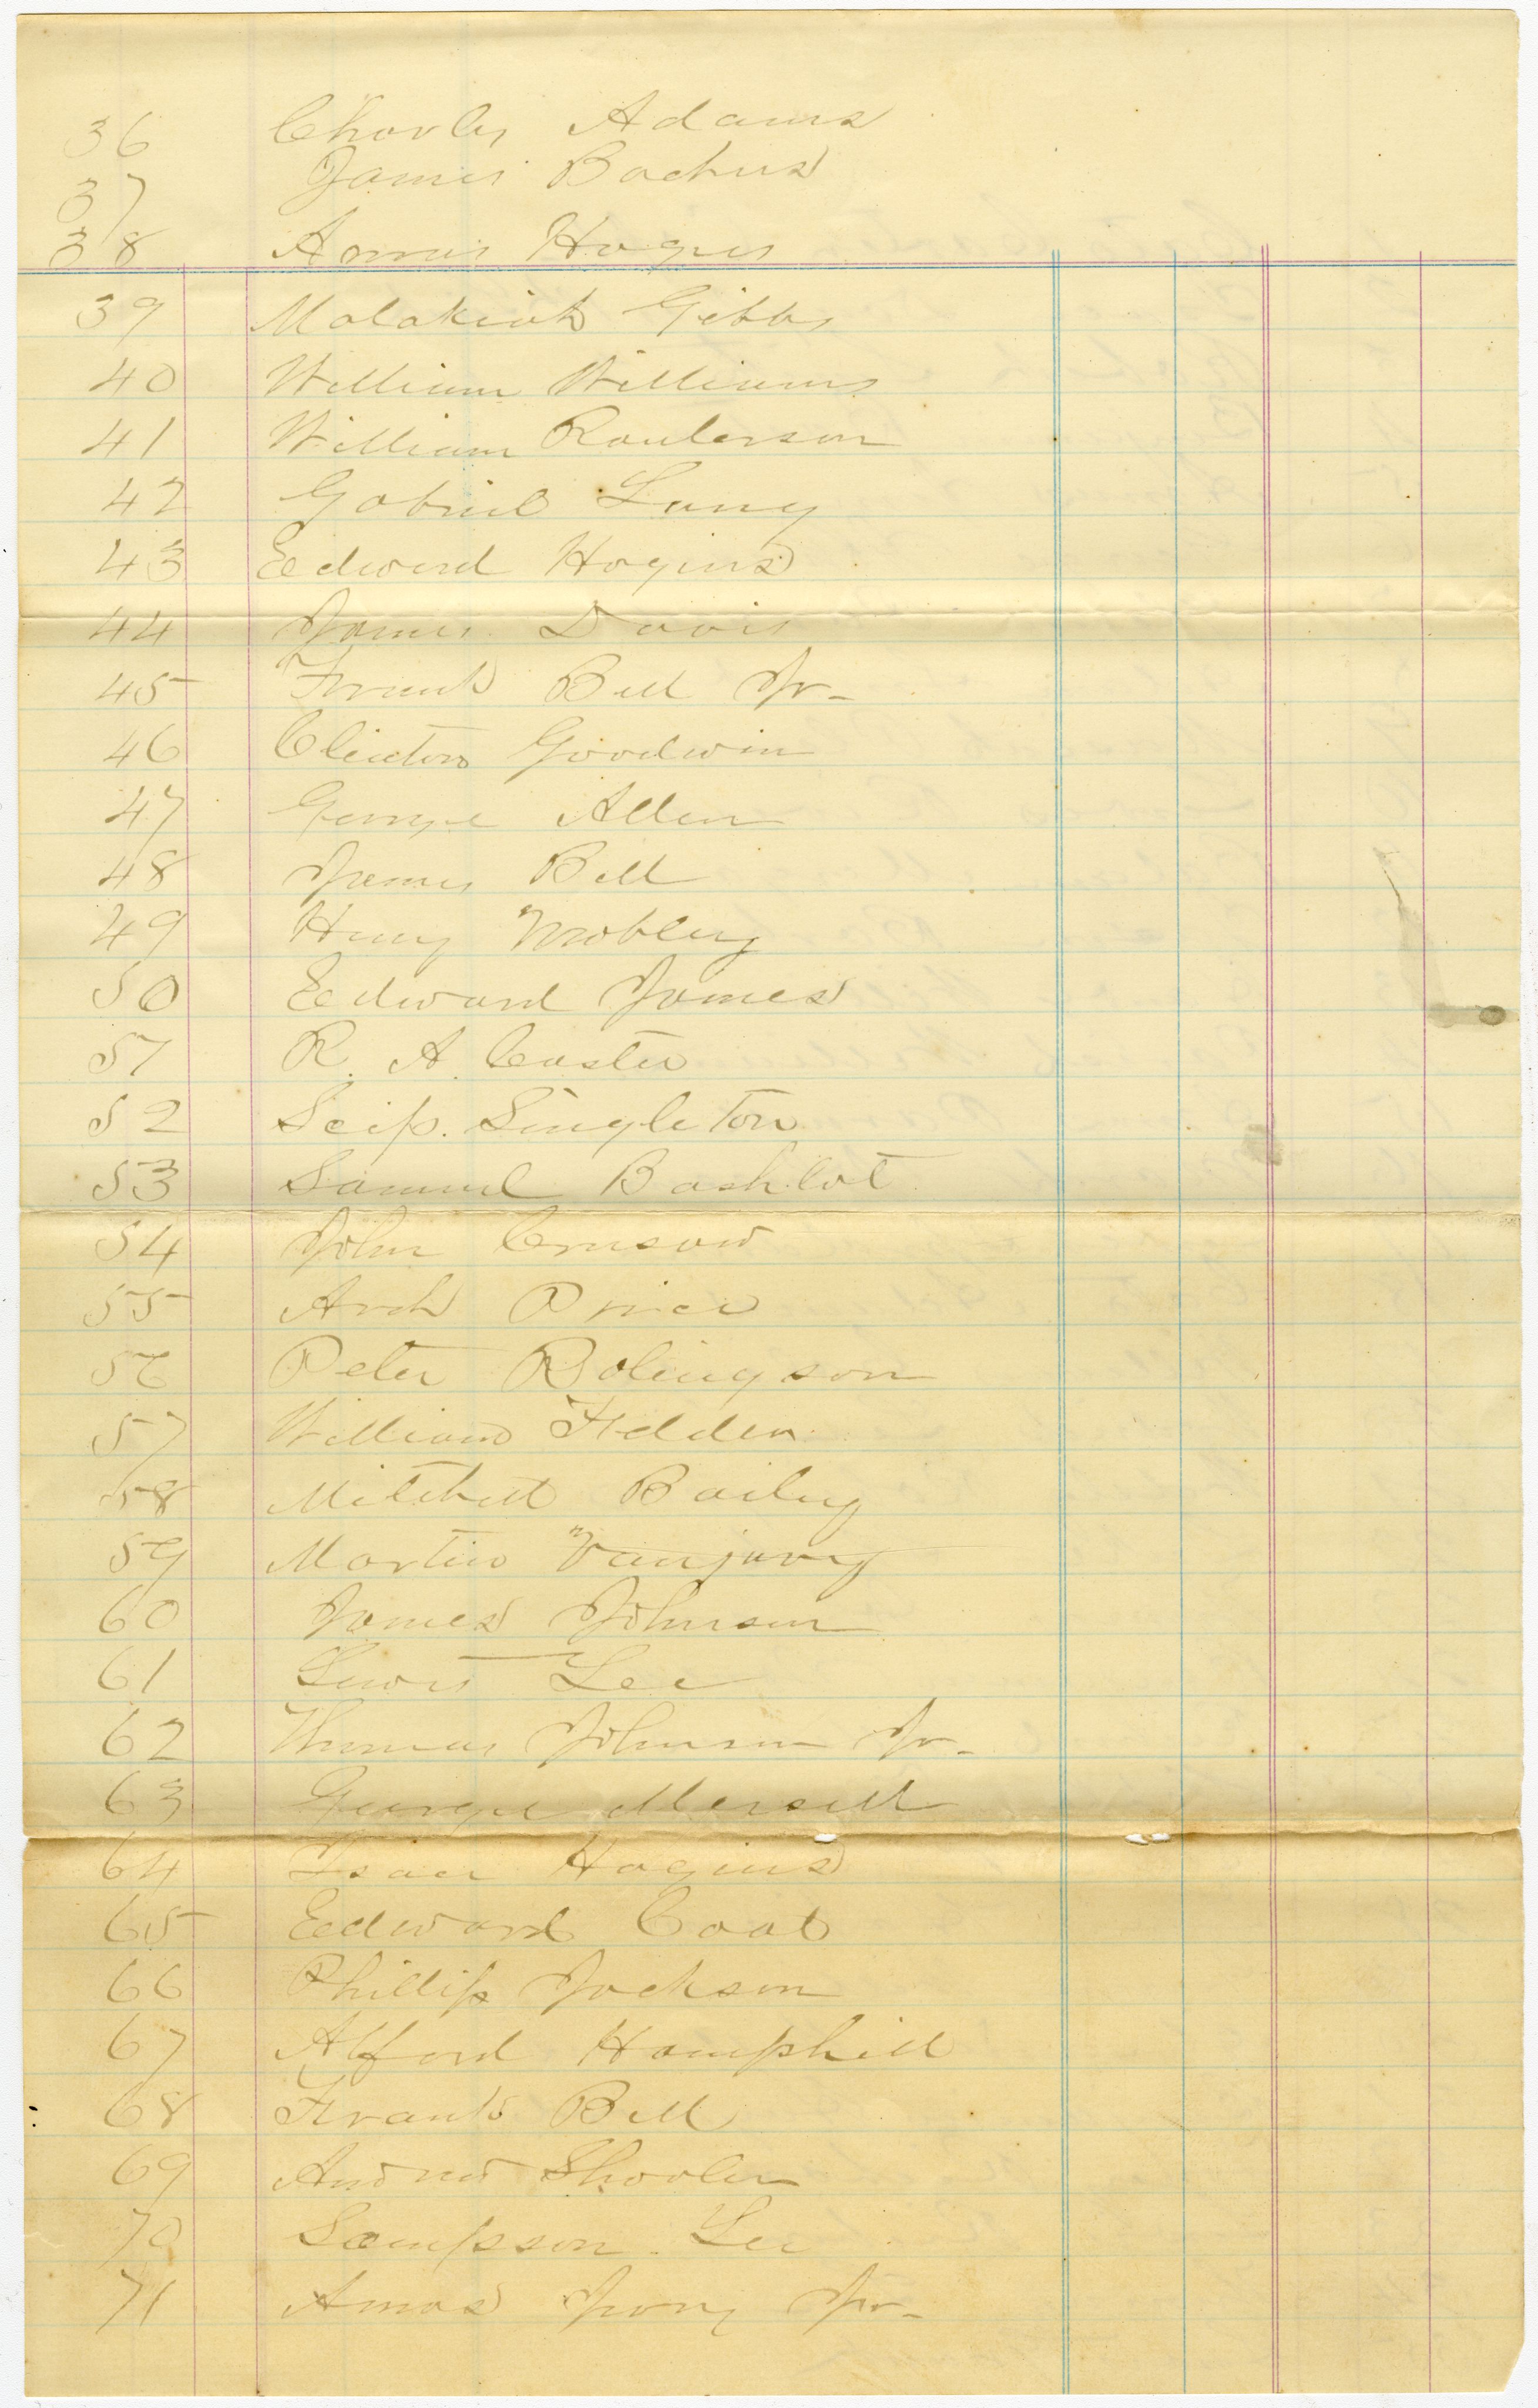 36 Charles Adams
37 James Bachus
38 Amus Hogies
39 Malakiah Gibbs
40 William Williams
41 William Roulerson
42 Gabriel Lang
43 Edward Hogins
44 James Davis
45 Frank Bell Jr-
46 Clinton Goodwin
47 George Allen
48 James Bell
49 Henry Mobley
50 Edward James
51 R. A. Caster
52 Scip. Singleton
53 Samuel Bashlot
54 John Crusow
55 Arch Price
56 Peter Rolingson
57 William Fedden
58 Mitchell Baily
59 Martin
60 James Johnson
61 Lewis Lee
62 Thomas Johnson Jr-
63 George
64 Isaac Hogins
65 Edward Coal
66 Phillip Jackson
67 Alford Hamphill
68 Frank Bell
69 Andrew
70 Sampson Lee
71 Amos Jr-